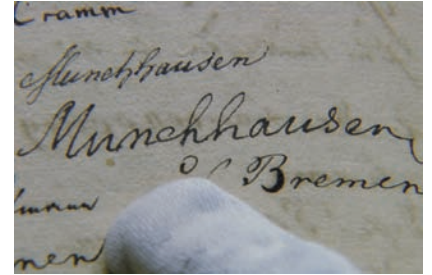 Cramm
Munchhausen
Munchhausen
Bremen
nen